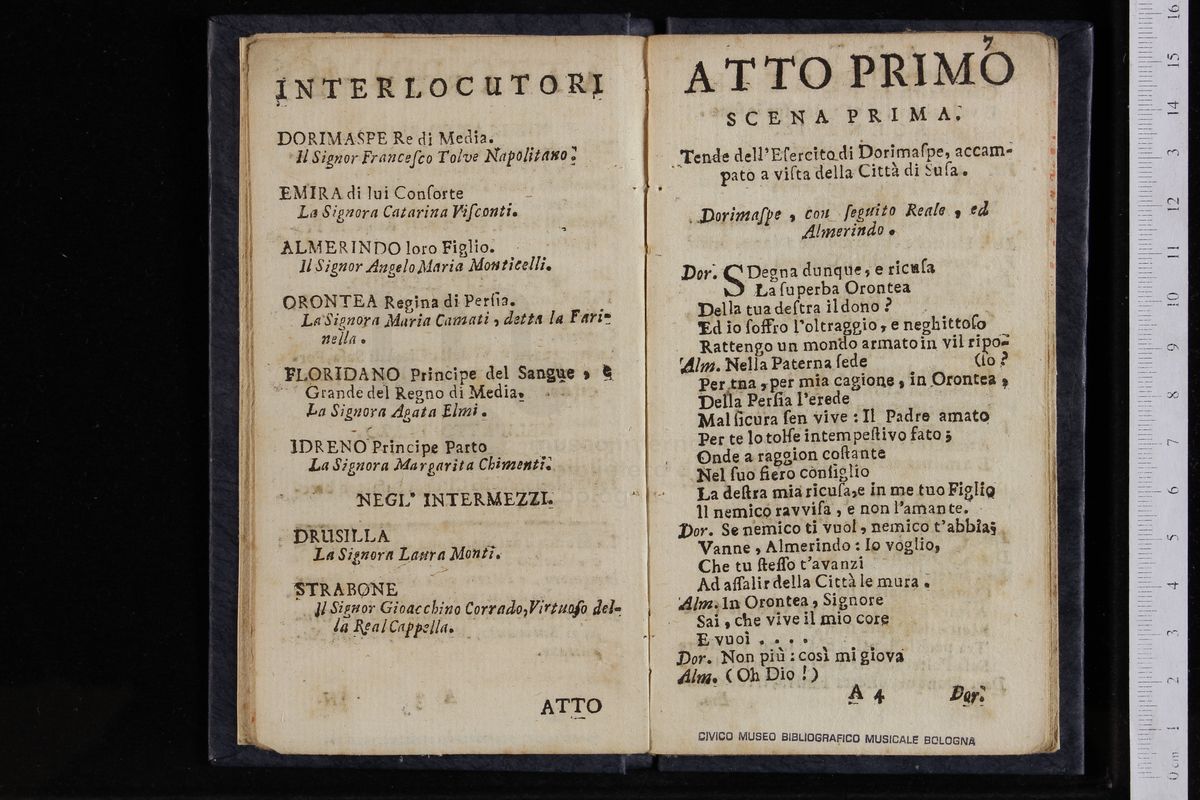 INTERLOCUTORI
DORIMASPE Re di Media.
Il Signor Franceſco Tolve Napolitano.
EMIRA di lui Conſorte
La Signora Catarina Viſconti.
ALMERINDO loro Figlio.
Il Signor Angelo Maria Monticelli.
ORONTEA Regina di Perſia.
La Signora Maria Camati, detta la Fari-
nella.
FLORIDANO Principe del Sangue, e
Grande del Regno di Media.
La Signora Agata Elmi.
IDRENO Principe Parto
La Signora Margarita Chimenti.
NEGL' INTERMEZZI.
DRUSILLA
La Signora Laura Monti.
STRABONE
Il Signor Gioacchino Corrado, Virtuoſo del-
la Real Cappella.
ATTO
7
ATTO PRIMO
SCENA PRIMA.
Tende dell'Eſercito di Dorimaſpe, accam-
pato a viſta della Città di Suſa.
Dorimaſpe, con ſeguito Reale, ed
Almerindo.
Dor. SDegna dunque, e ricuſa
La ſuperba Orontea
Della tua deſtra il dono?
Ed io ſoffro l'oltraggio, e neghittoſo
Rattengo un mondo armato in vil ripo-
Alm. Nella Paterna ſede (ſo?
Per tua, per mia cagione, in Orontea,
Della Perſia l'erede
Mal ſicura ſen vive: Il Padre amato
Per te lo tolſe intempeſtivo fato;
Onde a raggion coſtante
Nel ſuo fiero conſiglio
La deſtra mia ricuſa, e in me tuo Figlio
Il nemico ravviſa, e non l'amante.
Dor. Se nemico ti vuol, nemico t'abbia;
Vanne, Almerindo: Io voglio,
Che tu ſteſſo t'avanzi
Ad aſſalir della Città le mura.
Alm. In Orontea, Signore
Sai, che vive il mio core
E vuoi . . . .
Dor. Non più: così mi giova
Alm. (Oh Dio!)
A 4 Dor.
CIVICO MUSEO BIBLIOGRAFICO MUSICALE BOLOGNA